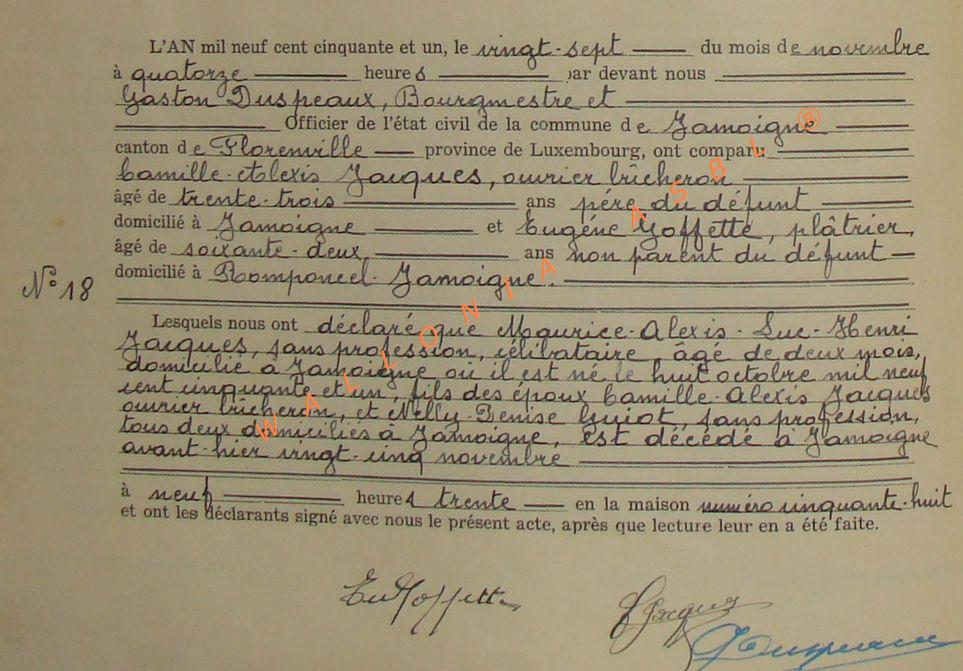 L'AN mil neuf cent cinquante et un, le vingt-sept du mois de novembre
à quatorze heures par devant nous
Gaston Duspeaux, Bourgmestre et
Officier de l'état civil de la commune de Jamoigne
canton de Florenville province de Luxembourg, ont comparu
Camille-Alexis Jacques, ouvrier bûcheron
âgé de trente-trois ans père du défunt
domicilié à Jamoigne et Eugène Goffette, plâtrier,
âgé de soixante-deux ans non parent du défunt
domicilié à Romponcel-Jamoigne.
N° 18
Lesquels nous ont déclaré que Maurice-Alexis-Luc-Henri
Jacques, sans profession, célibataire, âgé de deux mois,
domicilié à Jamoigne où il est né le huit octobre mil neuf
cent cinquante et un, fils des époux Camille-Alexis Jacques
ouvrier bûcheron, et Nelly-Denise Guiot, sans profession,
tous deux domiciliés à Jamoigne, est décédé à Jamoigne
avant-hier vingt-cinq novembre
à neuf heures trente en la maison numéro cinquante-huit
et ont les déclarants signé avec nous le présent acte, après que lecture leur en a été faite.
Eu Goffette
Jacques
G Duspeaux
WALLONIA ASBL ®